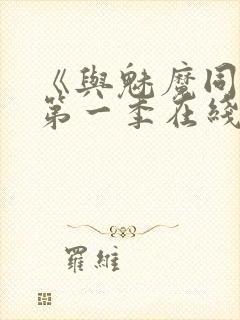 《與魅魔同
第一季在綫
羅維